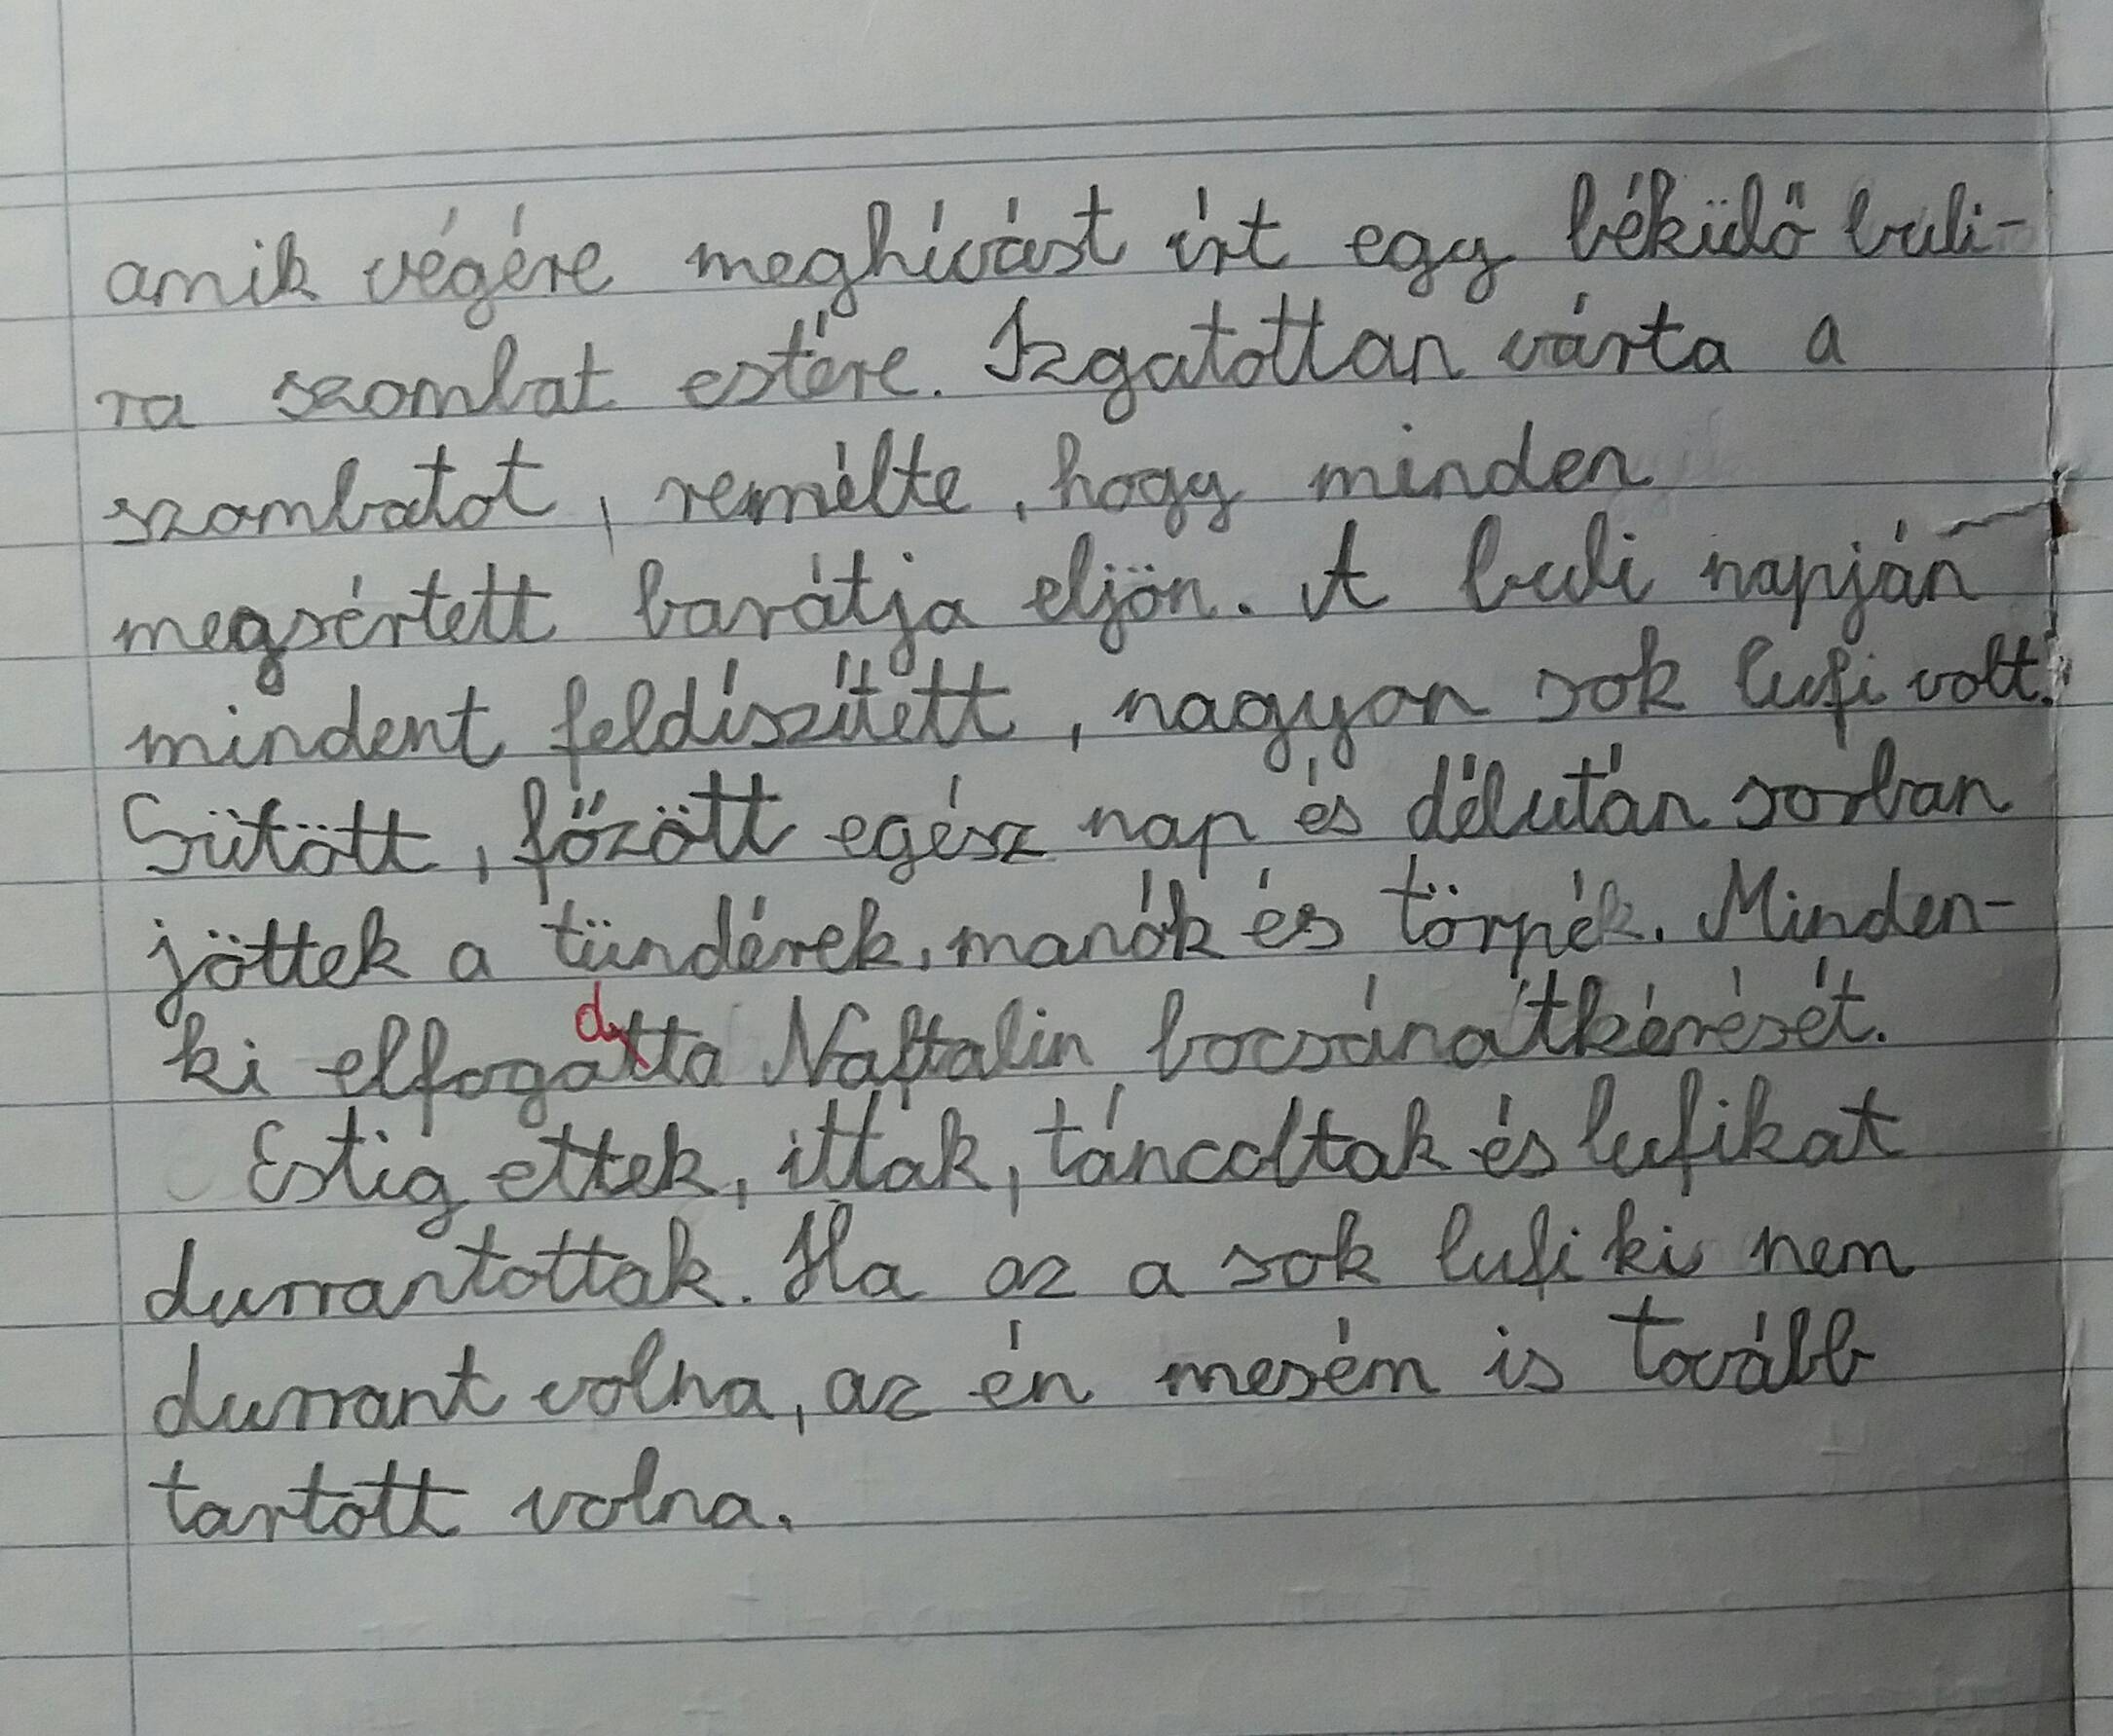 amik végére meghívást írt egy békülő buli-
ra szombat estére. Izgatottan várta a
szombatot, remélte, hogy minden
megsértett barátja eljön. A buli napján
mindent feldíszített, nagyon sok lufi volt.
Sütött, főzött egész nap és délután sorban
jöttek a tündérek, manók és törpék. Minden-
d
ki elfogatta Naftalin bocsánatkérését.
Estig ettek, ittak, táncoltak és lufikat
durrantottak. Ha az a sok lufi ki nem
durrant volna, az én mesém is tovább
tartott volna.